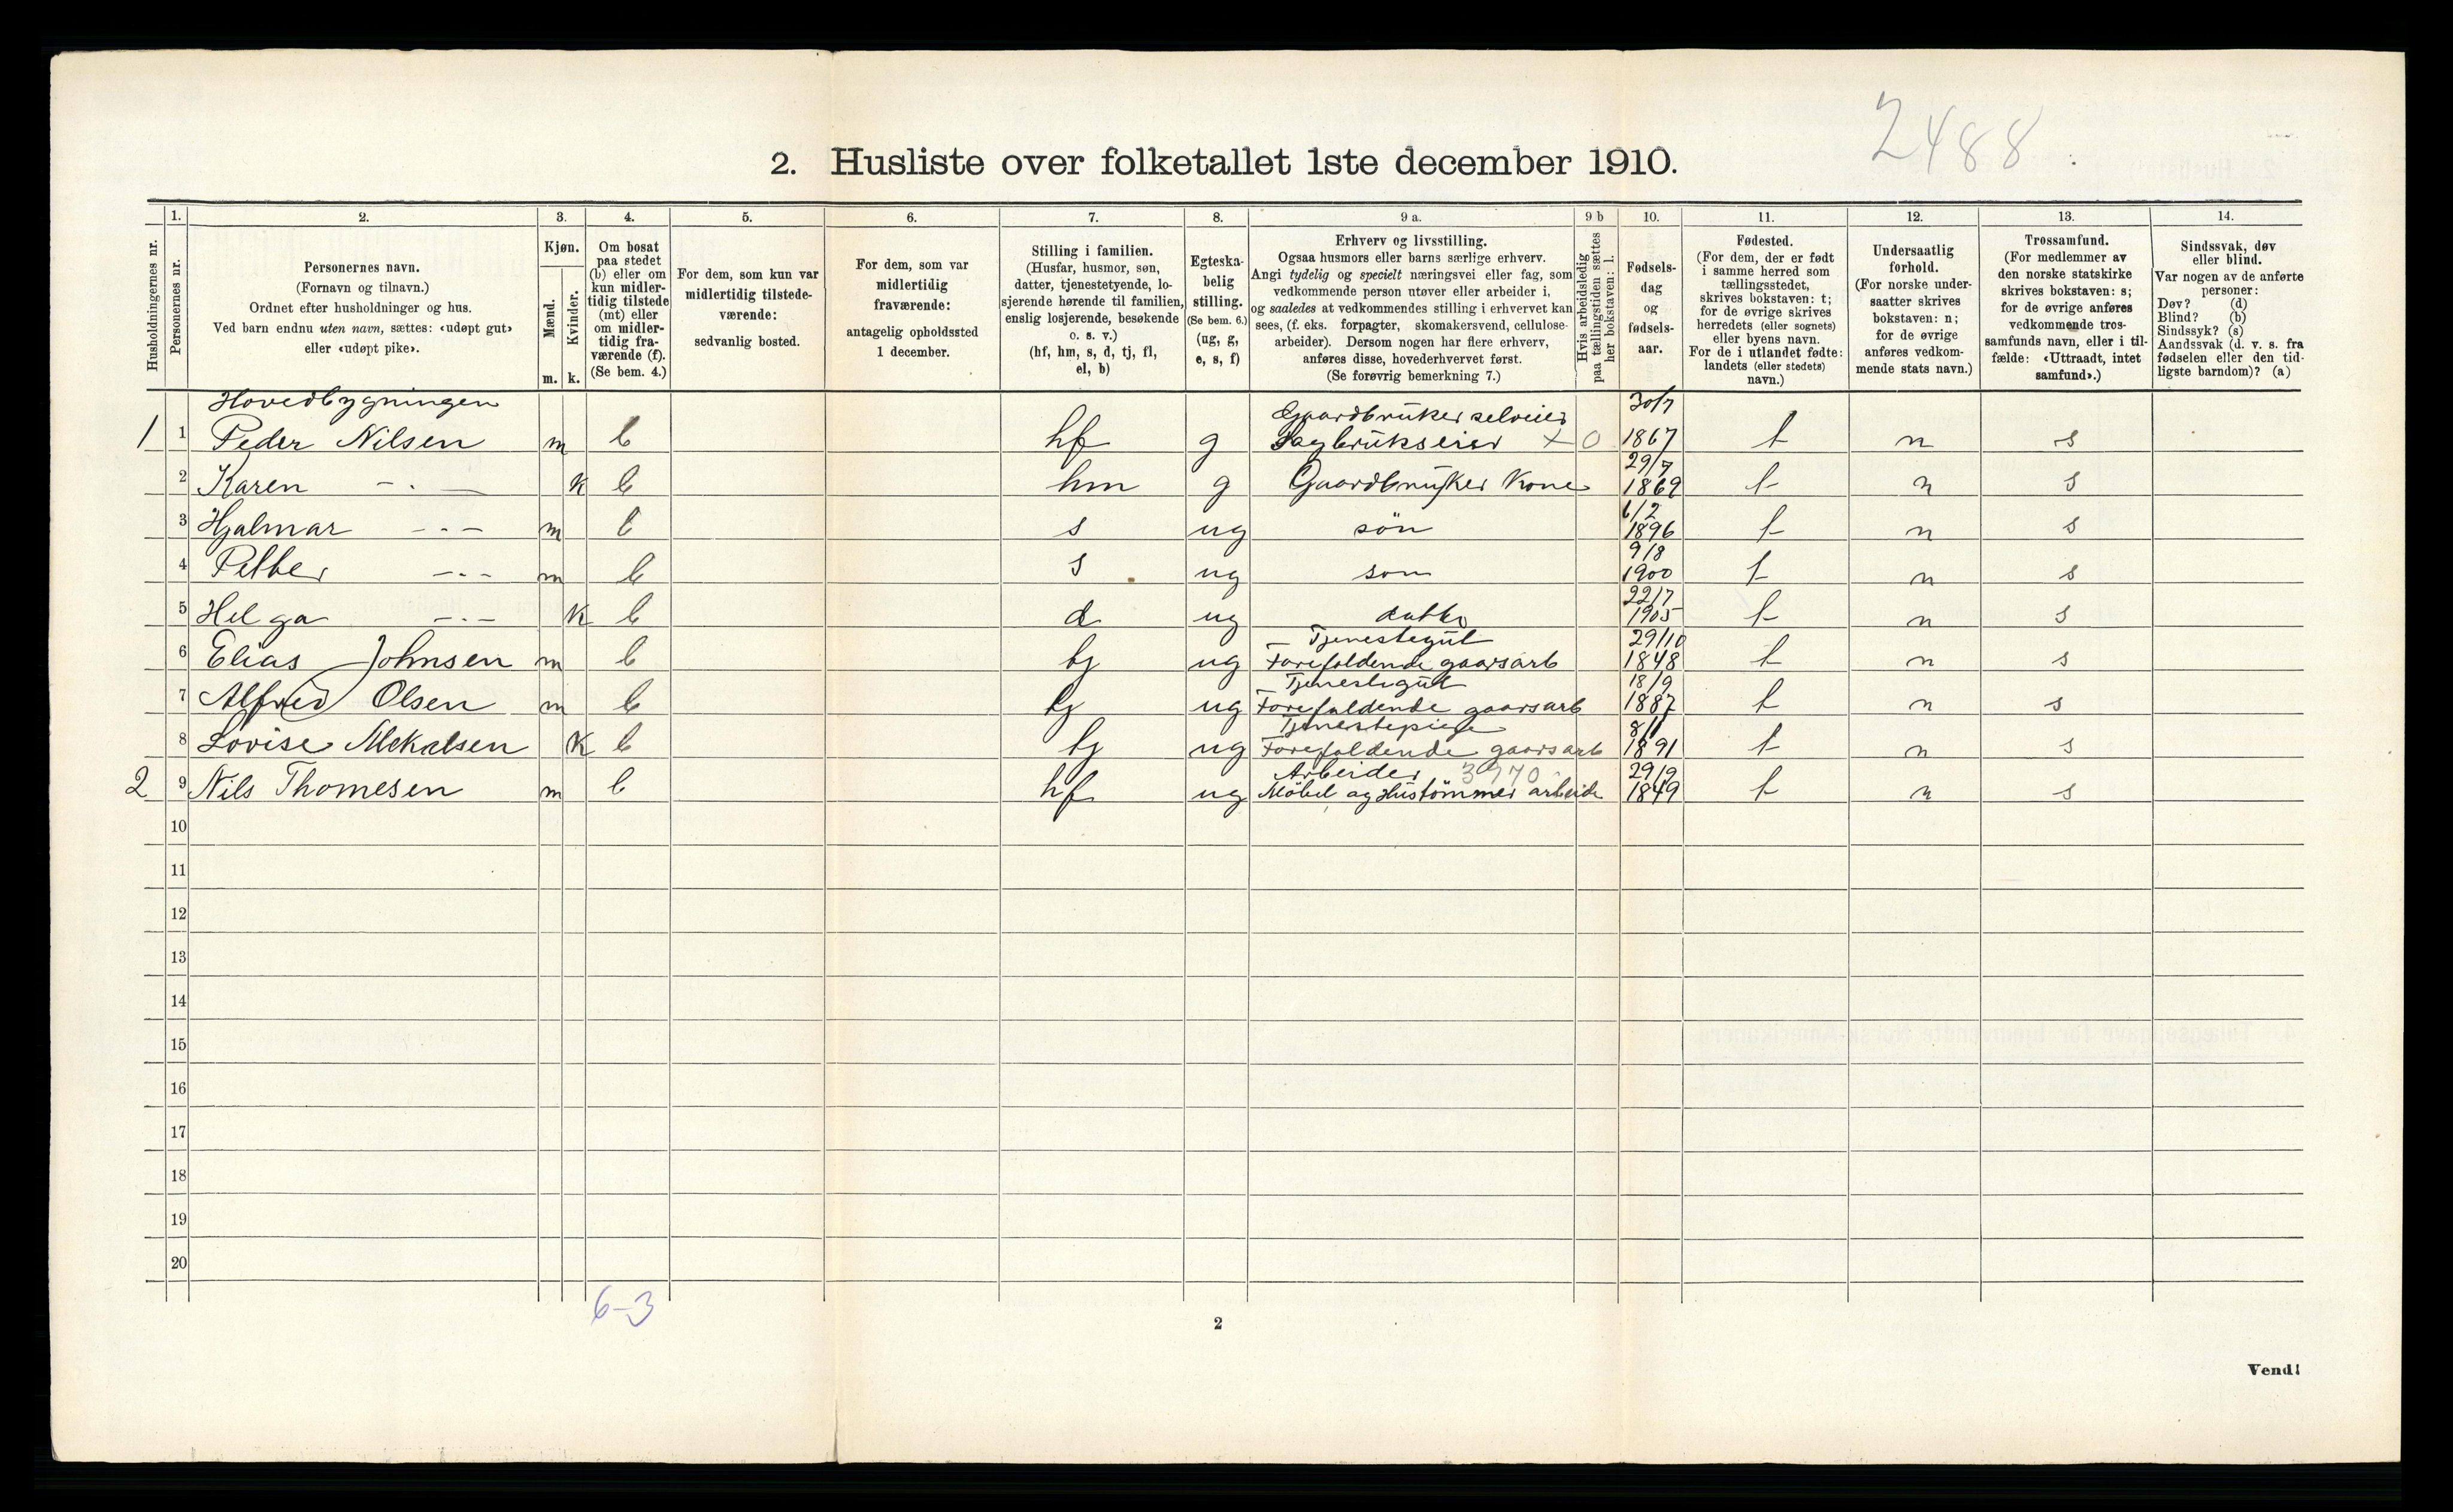 2488
2. Husliste over folketallet 1ste december 1910.
Husholdningernes nr.
1. Personernes nr.
2. Personernes navn. (Fornavn og tilnavn.) Ordnet efter husholdninger og hus. Ved barn endnu uten navn, sættes: «udøpt gut» eller «udøpt pike».
3. Kjøn. Mænd. m. Kvinder. k.
4. Om bosat paa stedet (b) eller om kun midlertidig tilstede (mt) eller om midlertidig fraværende (f). (Se bem. 4.)
5. For dem, som kun var midlertidig tilstedeværende: sedvanlig bosted.
6. For dem, som var midlertidig fraværende: antagelig opholdssted 1 december.
7. Stilling i familien. (Husfar, husmor, søn, datter, tjenestetyende, losjerende hørende til familien, enslig losjerende, besøkende o. s. v.) (hf, hm, s, d, tj, fl, el, b)
8. Egteskabelig stilling. (Se bem. 6.) (ug, g, e, s, f)
9 a. Erhverv og livsstilling. Ogsaa husmors eller barns særlige erhverv. Angi tydelig og specielt næringsvei eller fag, som vedkommende person utøver eller arbeider i, og saaledes at vedkommendes stilling i erhvervet kan sees, (f. eks. forpagter, skomakersvend, cellulosearbeider). Dersom nogen har flere erhverv, anføres disse, hovederhvervet først. (Se forøvrig bemerkning 7.)
9 b Hvis arbeidsledig paa tællingstiden sættes her bokstaven: l.
10. Fødselsdag og fødselsaar.
11. Fødested. (For dem, der er født i samme herred som tællingsstedet, skrives bokstaven: t; for de øvrige skrives herredets (eller sognets) eller byens navn. For de i utlandet fødte: landets (eller stedets) navn.)
12. Undersaatlig forhold. (For norske undersaatter skrives bokstaven: n; for de øvrige anføres vedkommende stats navn.)
13. Trossamfund. (For medlemmer av den norske statskirke skrives bokstaven: s; for de øvrige anføres vedkommende trossamfunds navn, eller i tilfælde: «Uttraadt, intet samfund».)
14. Sindssvak, døv eller blind. Var nogen av de anførte personer: Døv? (d) Blind? (b) Sindssyk? (s) Aandssvak (d. v. s. fra fødselen eller den tidligste barndom)? (a)
Hovedbygningen
1 1 Peder Nilsen m b hf g Gaardbruker selveier Sagbrukseier x 0 30/7 1867 t n s
2 Karen -.- k b hm g Gaardbruker Kone 29/7 1869 t n s
3 Hjalmar -.- m b s ug søn 6/2 1896 t n s
4 Petter -.- m b s ug son 9/8 1900 t n s
5 Helga -.- k b d ug datter 22/7 1905 t n s
6 Elias Johnsen m b tj ug Tjenestegut Forefaldende gaarsarb 29/10 1848 t n s
7 Alfred Olsen m b tj ug Tjenestegut Forefaldende gaarsarb 18/9 1887 t n s
8 Lovise Mekalsen k b tj ug Tjenestepige Forefaldende gaarsarb 8/1 1891 t n s
2 9 Nils Thomesen m b hf ug Arbeider 3970 Möbel og Hustömmer arbeide 29/9 1849 t n s
10
11
12
13
14
15
16
17
18
19
20
6-3
2
Vend!